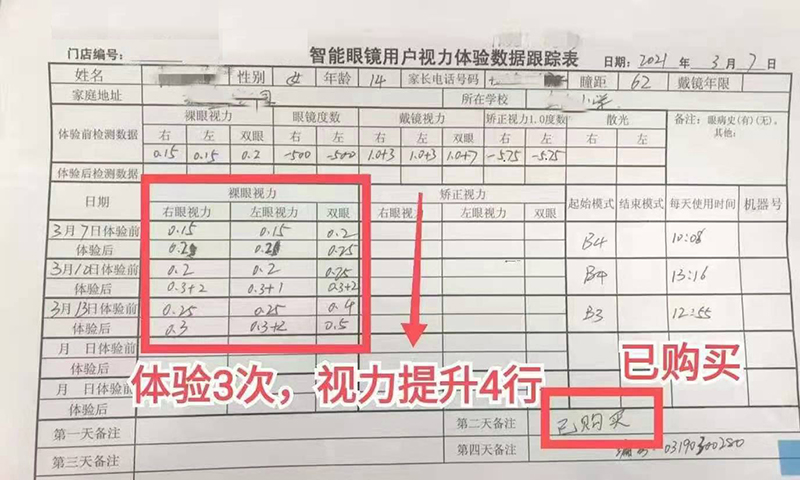 智能眼镜用户视力体验数据跟踪表
门店编号: 日期: 2021 年 3 月 7 日
姓名 性别 女 年龄 14 家长电话号码 瞳距 62 戴镜年限
家庭地址 所在学校
体验前检测数据 裸眼视力 眼镜度数 戴镜视力 矫正视力1.0度数 散光 备注: 眼病史(有)(无),
其他:
右 左 双眼 右 左 右 左 双眼 右 左 右 左
0.15 0.15 0.2 -500 -500 1.0+3 1.0+3 1.0+7 -5.75 -5.75
体验后检测数据
日期 裸眼视力 矫正视力 起始模式 结束模式 每天使用时间 机器号
右眼视力 左眼视力 双眼 右眼视力 左眼视力 双眼
3月7日体验前 0.15 0.15 0.2 B4 10:08
体验后 0.25
3月10日体验前 0.2 0.2 0.25 B4 13:16
体验后 0.3+2 0.3+1 0.3+2
3月13日体验前 0.25 0.25 0.4 B3 12:55
体验后 0.3 0.3+2 0.5
月 日体验前
体验后
月 日体验前
体验后
体验3次，视力提升4行
已购买
第一天备注 第二天备注 已购买
第三天备注 第四天备注 03190300280